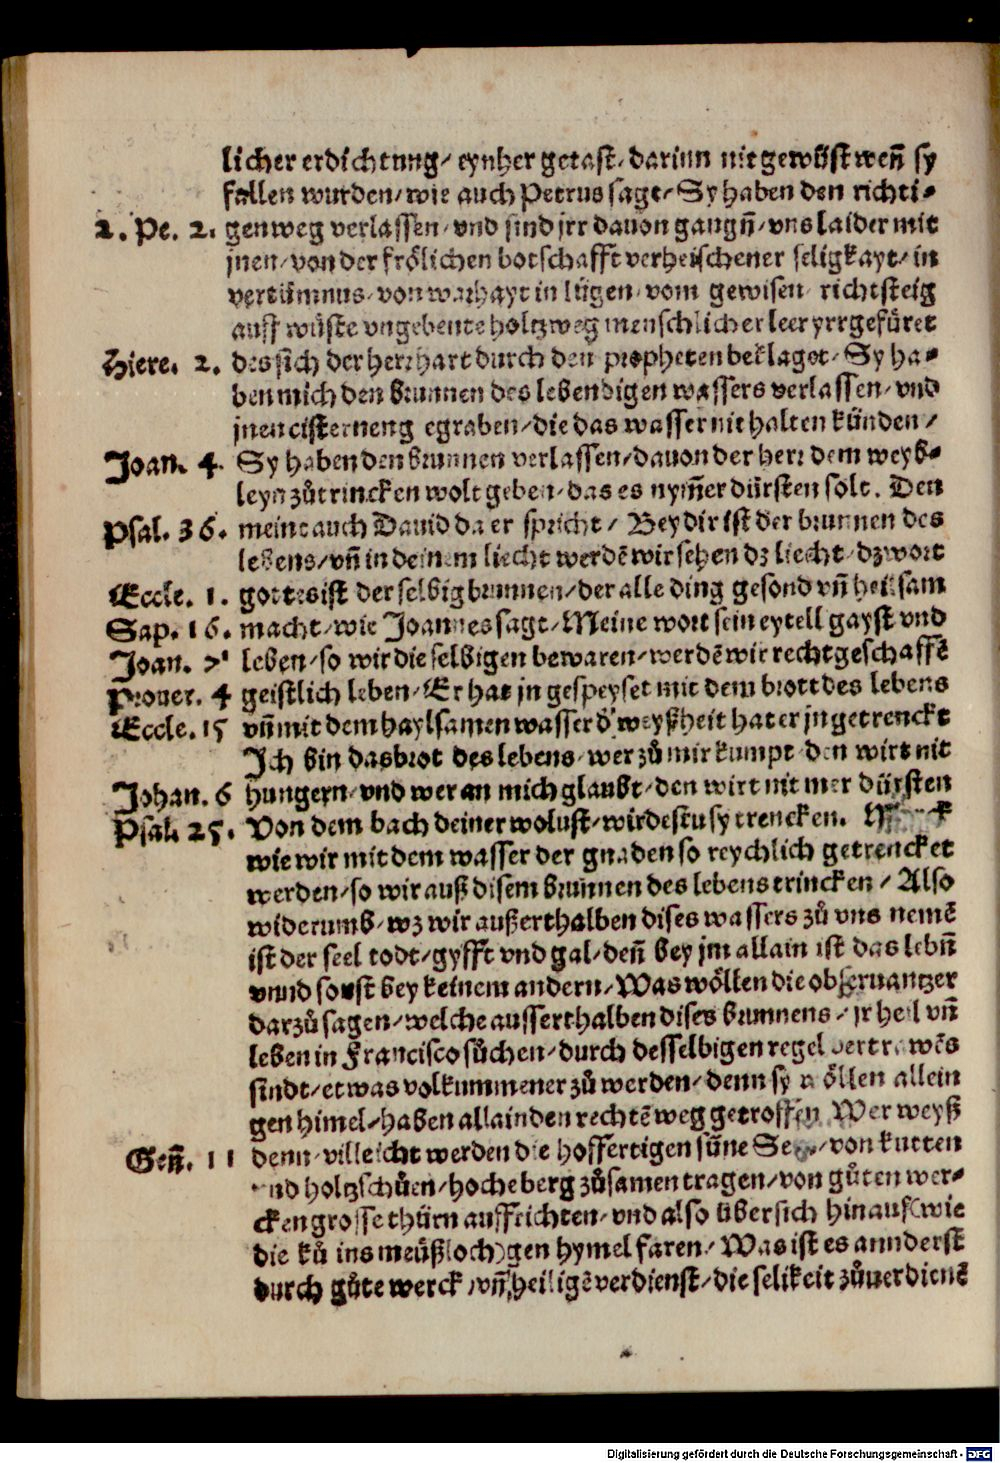 licher erdichtung/ eynher getast/ darinn nit gewüst weñ sy
fallen wurden/ wie auch Petrus sagt/ Sy haben den richti-
2. Pe. 2. gen weg verlassen/ vnd sind jrr dauon gangñ/ vns laider mit
jnen/ von der frölichen botschafft verheischener seligkayt/ in
von warhayt in lügen/ vom gewisen richtsteig
auff wüste vngebente holtzweg menschlicher leer yrrgefüret
Hiere. 2. des sich der herr hart durch den propheten beklaget/ Sy ha-
ben mich den brunnen des lebendigen wassers verlassen/ vnd
jnen cisterneng egraben/ die das wasser nit halten künden/
Joan. 4. Sy haben den brunnen verlassen/ dauon der herr dem weyb-
leyn zůtrincken wolt geben/ das es nym̃er dürsten solt. Den
Psal. 36. meint auch Dauid da er spricht/ Bey dir ist der brunnen des
lebens/ vñ in deinem liecht werdē wir sehen dz liecht/ dz wort
Eccle. 1. gottes ist der selbig brunnen/ der alle ding gesond vñ heilsam
Sap. 16. macht/ wie Joannes sagt/ Meine wort sein eytell gayst vnd
Joan. 7 leben/ so wir die selbigen bewaren/ werdē wir recht geschaffē
Prouer. 4 geistlich leben/ Er hat jn gespeyset mit dem brott des lebens
Eccle. 15 vñ mit dem haylsamen wasser d' weyßheit hat er jn getrenckt
Ich bin das brot des lebens/ wer zů mir kumpt den wirt nit
Johan. 6 hungern/ vnd wer an mich glaubt/ den wirt nit mer dürsten
Psal. 25. Von dem bach deiner wolust/ wirdestu sy trencken.
wie wir mit dem wasser der gnaden so reychlich getrencket
werden/ so wir auß disem brunnen des lebens trincken/ Also
widerumb/ wz wir außerthalben dises wassers zů vns nemē
ist der seel todt/ gyfft vnd gal/ deñ bey jm allain ist das lebñ
vnnd sonst bey keinem andern/ Was wöllen die obseruantzer
darzů sagen/ welche ausserthalben dises brunnens/ jr heil vñ
leben in Francisco sůchen/ durch desselbigen regel
sindt/ etwas volkummener zů werden/ denn sy wöllen allein
gen himel/ haben allain den rechtē weg getroffen Wer weyß
Geñ. 11 denn/ villeicht werden die hoffertigen sün̄e Sem/ von kutten
vnd holtzschůen/ hoche berg zůsamen tragen/ von gůten wer-
cken grosse thürn auffrichten/ vnd also über sich hinauf (wie
die ků ins meüßloch) gen hymel faren/ Was ist es annderst
durch gůte werck vñ heiligē verdienst/ die selikeit zůuerdienē
Digitalisierung gefördert durch die Deutsche Forschungsgemeinschaft - DFG